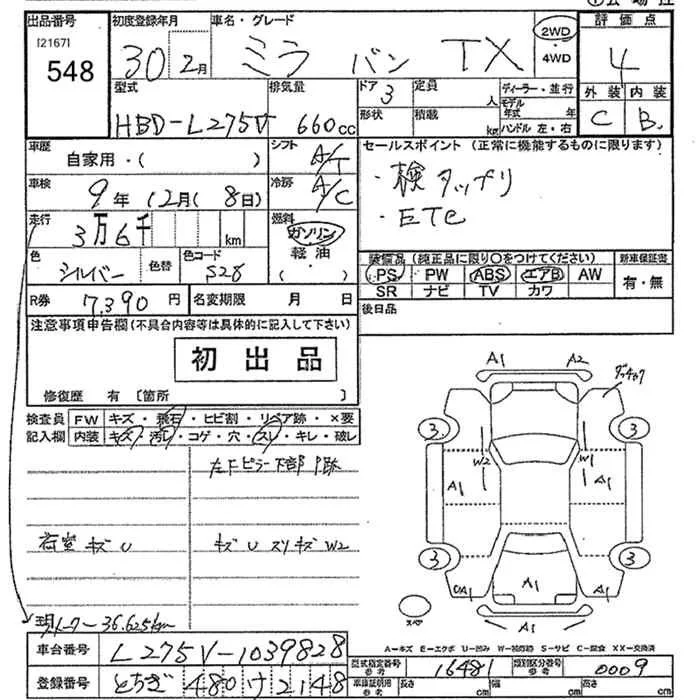 出品番号 初度登録年月 車名・グレード 評価点
[2167]
548 30 2月 ミラ バン TX 2WD ・4WD 4
型式 排気量 ドア 3 定員 人 ディーラー・並行 外装 内装
HBD-L275V 660cc 形状 積載 kg モデル年式 年 ハンドル 左・右 C B
車歴 自家用・( ) シフト A/T セールスポイント(正常に機能するものに限ります)
車検 9年 12月(8日) 冷房 A/C ・検タップリ
・ETC
走行 3万6千 km 燃料 ガソリン 軽油
色 シルバー 色替 色コード S28 ( ) 装備品(純正品に限り○をつけてください) 新車保証書
PS PW ABS エアB AW 有・無
R券 7,390円 名変期限 月 日 SR ナビ TV カワ
注意事項申告欄(不具合内容等は具体的に記入して下さい) 後日品
初出品
修復歴 有 [箇所 ]
検査員 FW キズ・飛石・ヒビ割・リペア跡・×要
記入欄 内装 キズ・汚れ・コゲ・穴・スレ・キレ・破レ
左Fピラー下部
荷室 キズ U キズ U スリキズ W2
A1 A2
3 3
W2 W1
A1 A1 A1
3 3
UA1 A1 A1
スペア A1
メーター 36,625km
A-キズ E-エクボ U-凹み W-補修跡 S-サビ C-腐食 XX-交換済
車台番号 L275V-1039828 型式指定番号 参考 16481 類別区分番号 参考 0009
登録番号 とちぎ 480 け 2148 車庫証明用 参考 長さ cm 幅 cm 高さ cm